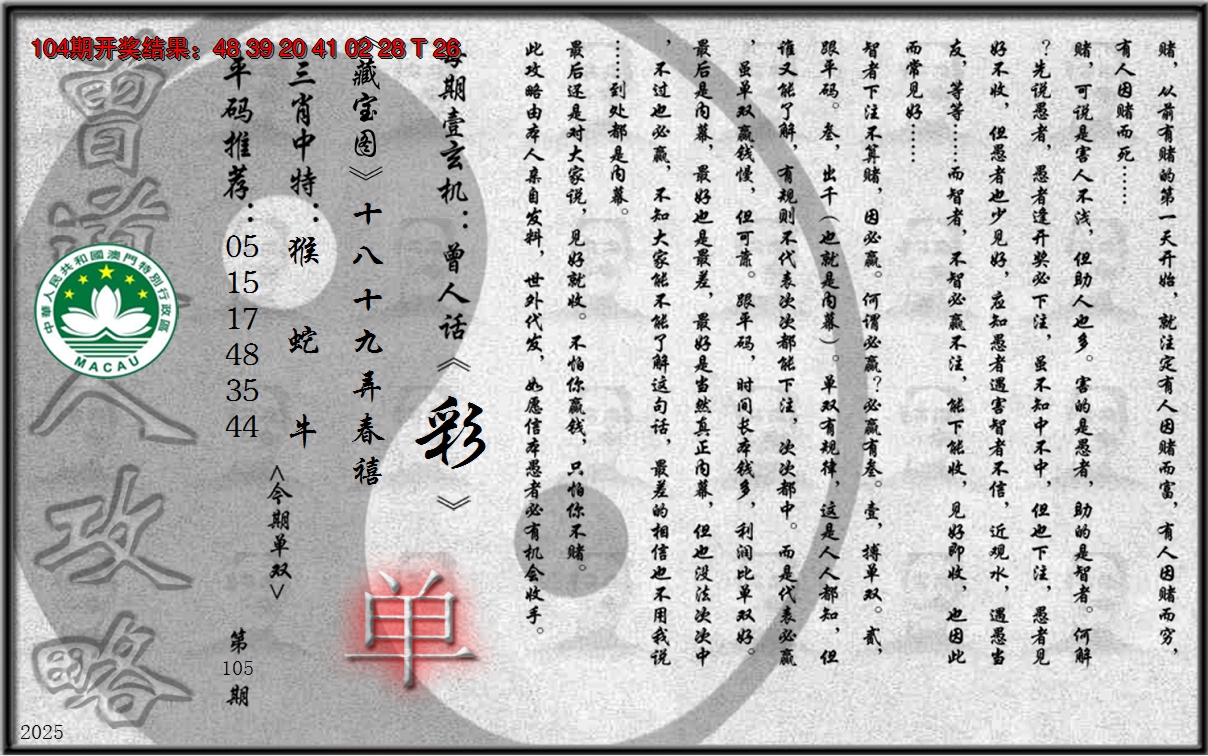 104期开奖结果：48 39 20 41 02 28 T 26
赌，从前有赌的第一天开始，就注定有人因赌而富，有人因赌而穷，
有人因赌而死……
赌，可说是害人不浅，但助人也多。害的是愚者，助的是智者。何解
？先说愚者，愚者逢开奖必下注，虽不知中不中，但也下注，愚者见
好不收，但愚者也少见好，应知愚者遇害智者不信，近观水，遇愚当
友，等等……而智者，不智必赢不注，能下能收，见好即收，也因此
而常见好……
智者下注不算赌，因必赢。何谓必赢？必赢有叁。壹，搏单双。贰，
跟平码。叁，出千（也就是内幕）。单双有规律，这是人人都知，但
谁又能了解，有规则不代表次次都能下注，次次都中。而是代表必赢
，虽单双赢钱慢，但可靠。跟平码，时间长本钱多，利润比单双好。
最后是内幕，最好也是最差，最好是当然真正内幕，但也没法次次中
，不过也必赢，不知大家能不能了解这句话，最差的相信也不用我说
……到处都是内幕。
最后还是对大家说，见好就收。不怕你赢钱，只怕你不赌。
此攻略由本人亲自发料，世外代发，如愿信本愚者必有机会收手。
每期壹玄机：曾人话《彩》
《藏宝图》十八十九弄春禧
单
三肖中特：猴 蛇 牛
<今期单双>
平码推荐：05 15 17 48 35 44
第105期
曾道人攻略
中華人民共和國澳門特別行政區
MACAU
2025